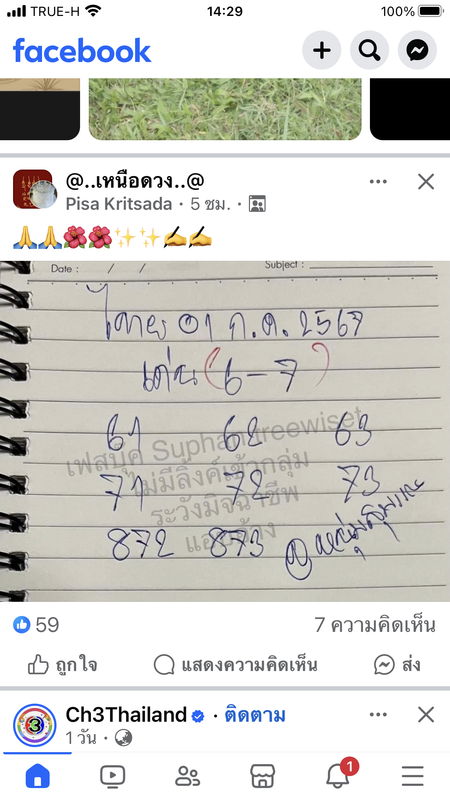 TRUE-H 14:29 100%
facebook
@..เหนือดวง..@
Pisa Kritsada · 5 ชม. ·
Date : / / Subject :
ไทย 01 ก.ค. 2567
เด่น (6-7)
61 62 63
เฟสบุ๊ค Suphan treewiset
ไม่มีลิ้งค์เข้ากลุ่ม
71 72 73
ระวังมิจฉาชีพ
แอบอ้าง
872 873
59 7 ความคิดเห็น
ถูกใจ แสดงความคิดเห็น ส่ง
Ch3Thailand · ติดตาม
1 วัน ·
3
1